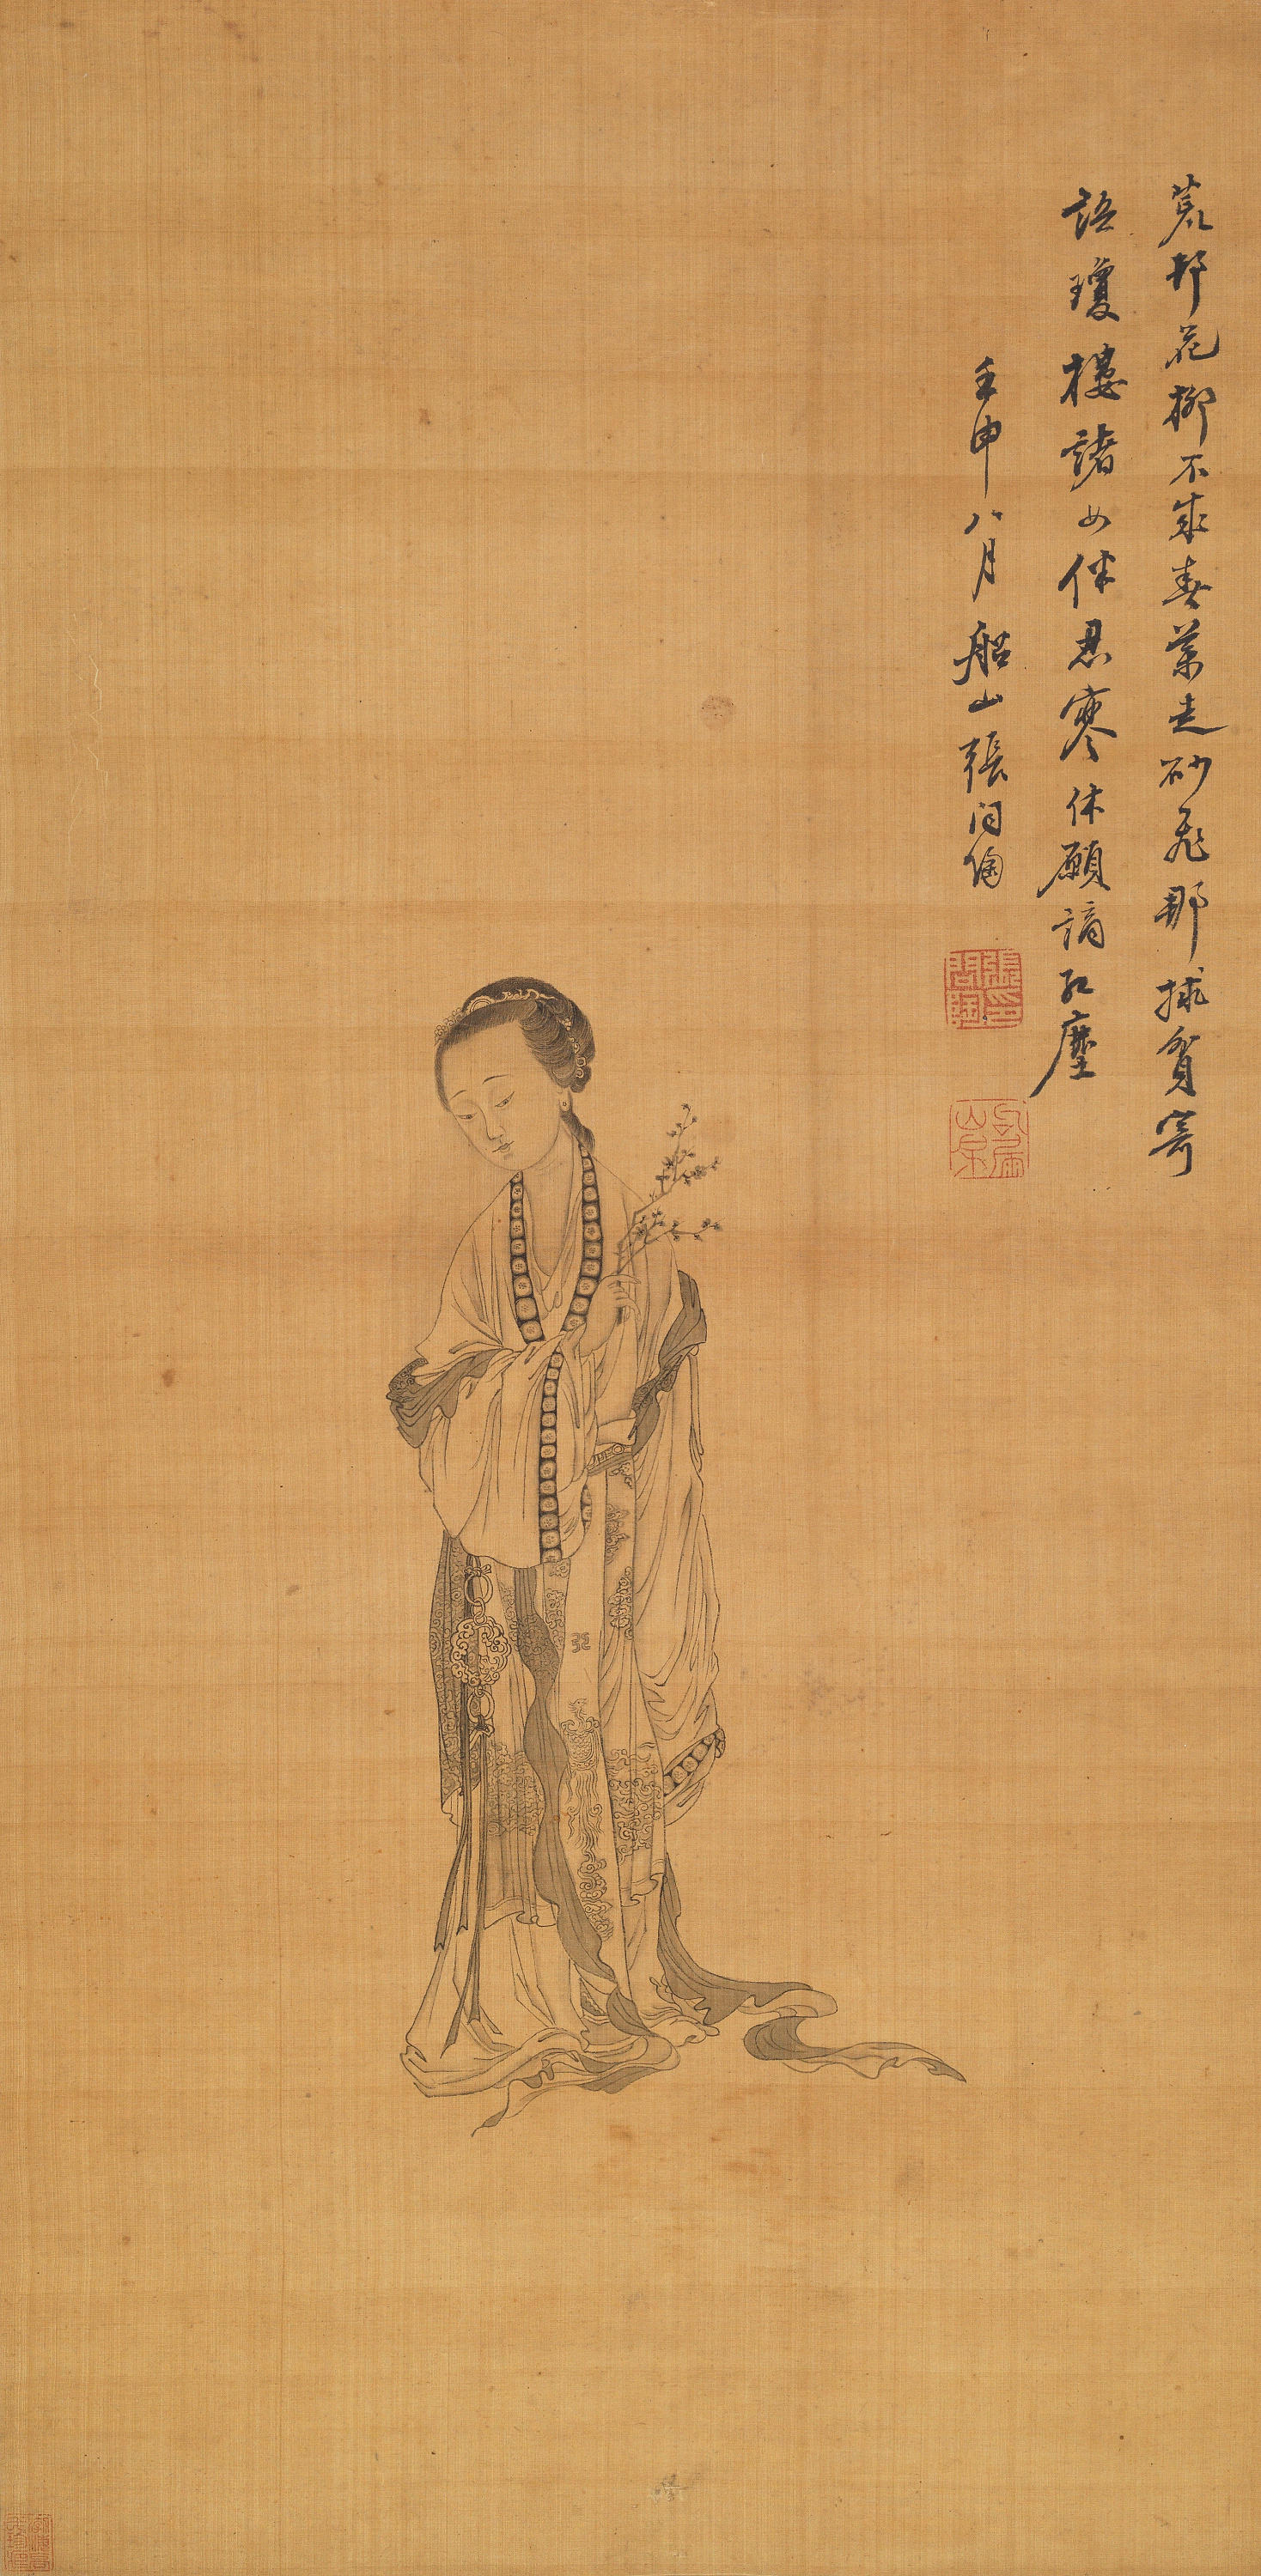 荒邨花柳不成春葉走砂飛那捄貧寄
語瓊樓諸女伴忍寒休願謫紅塵
壬申八月船山張問陶
張印問陶